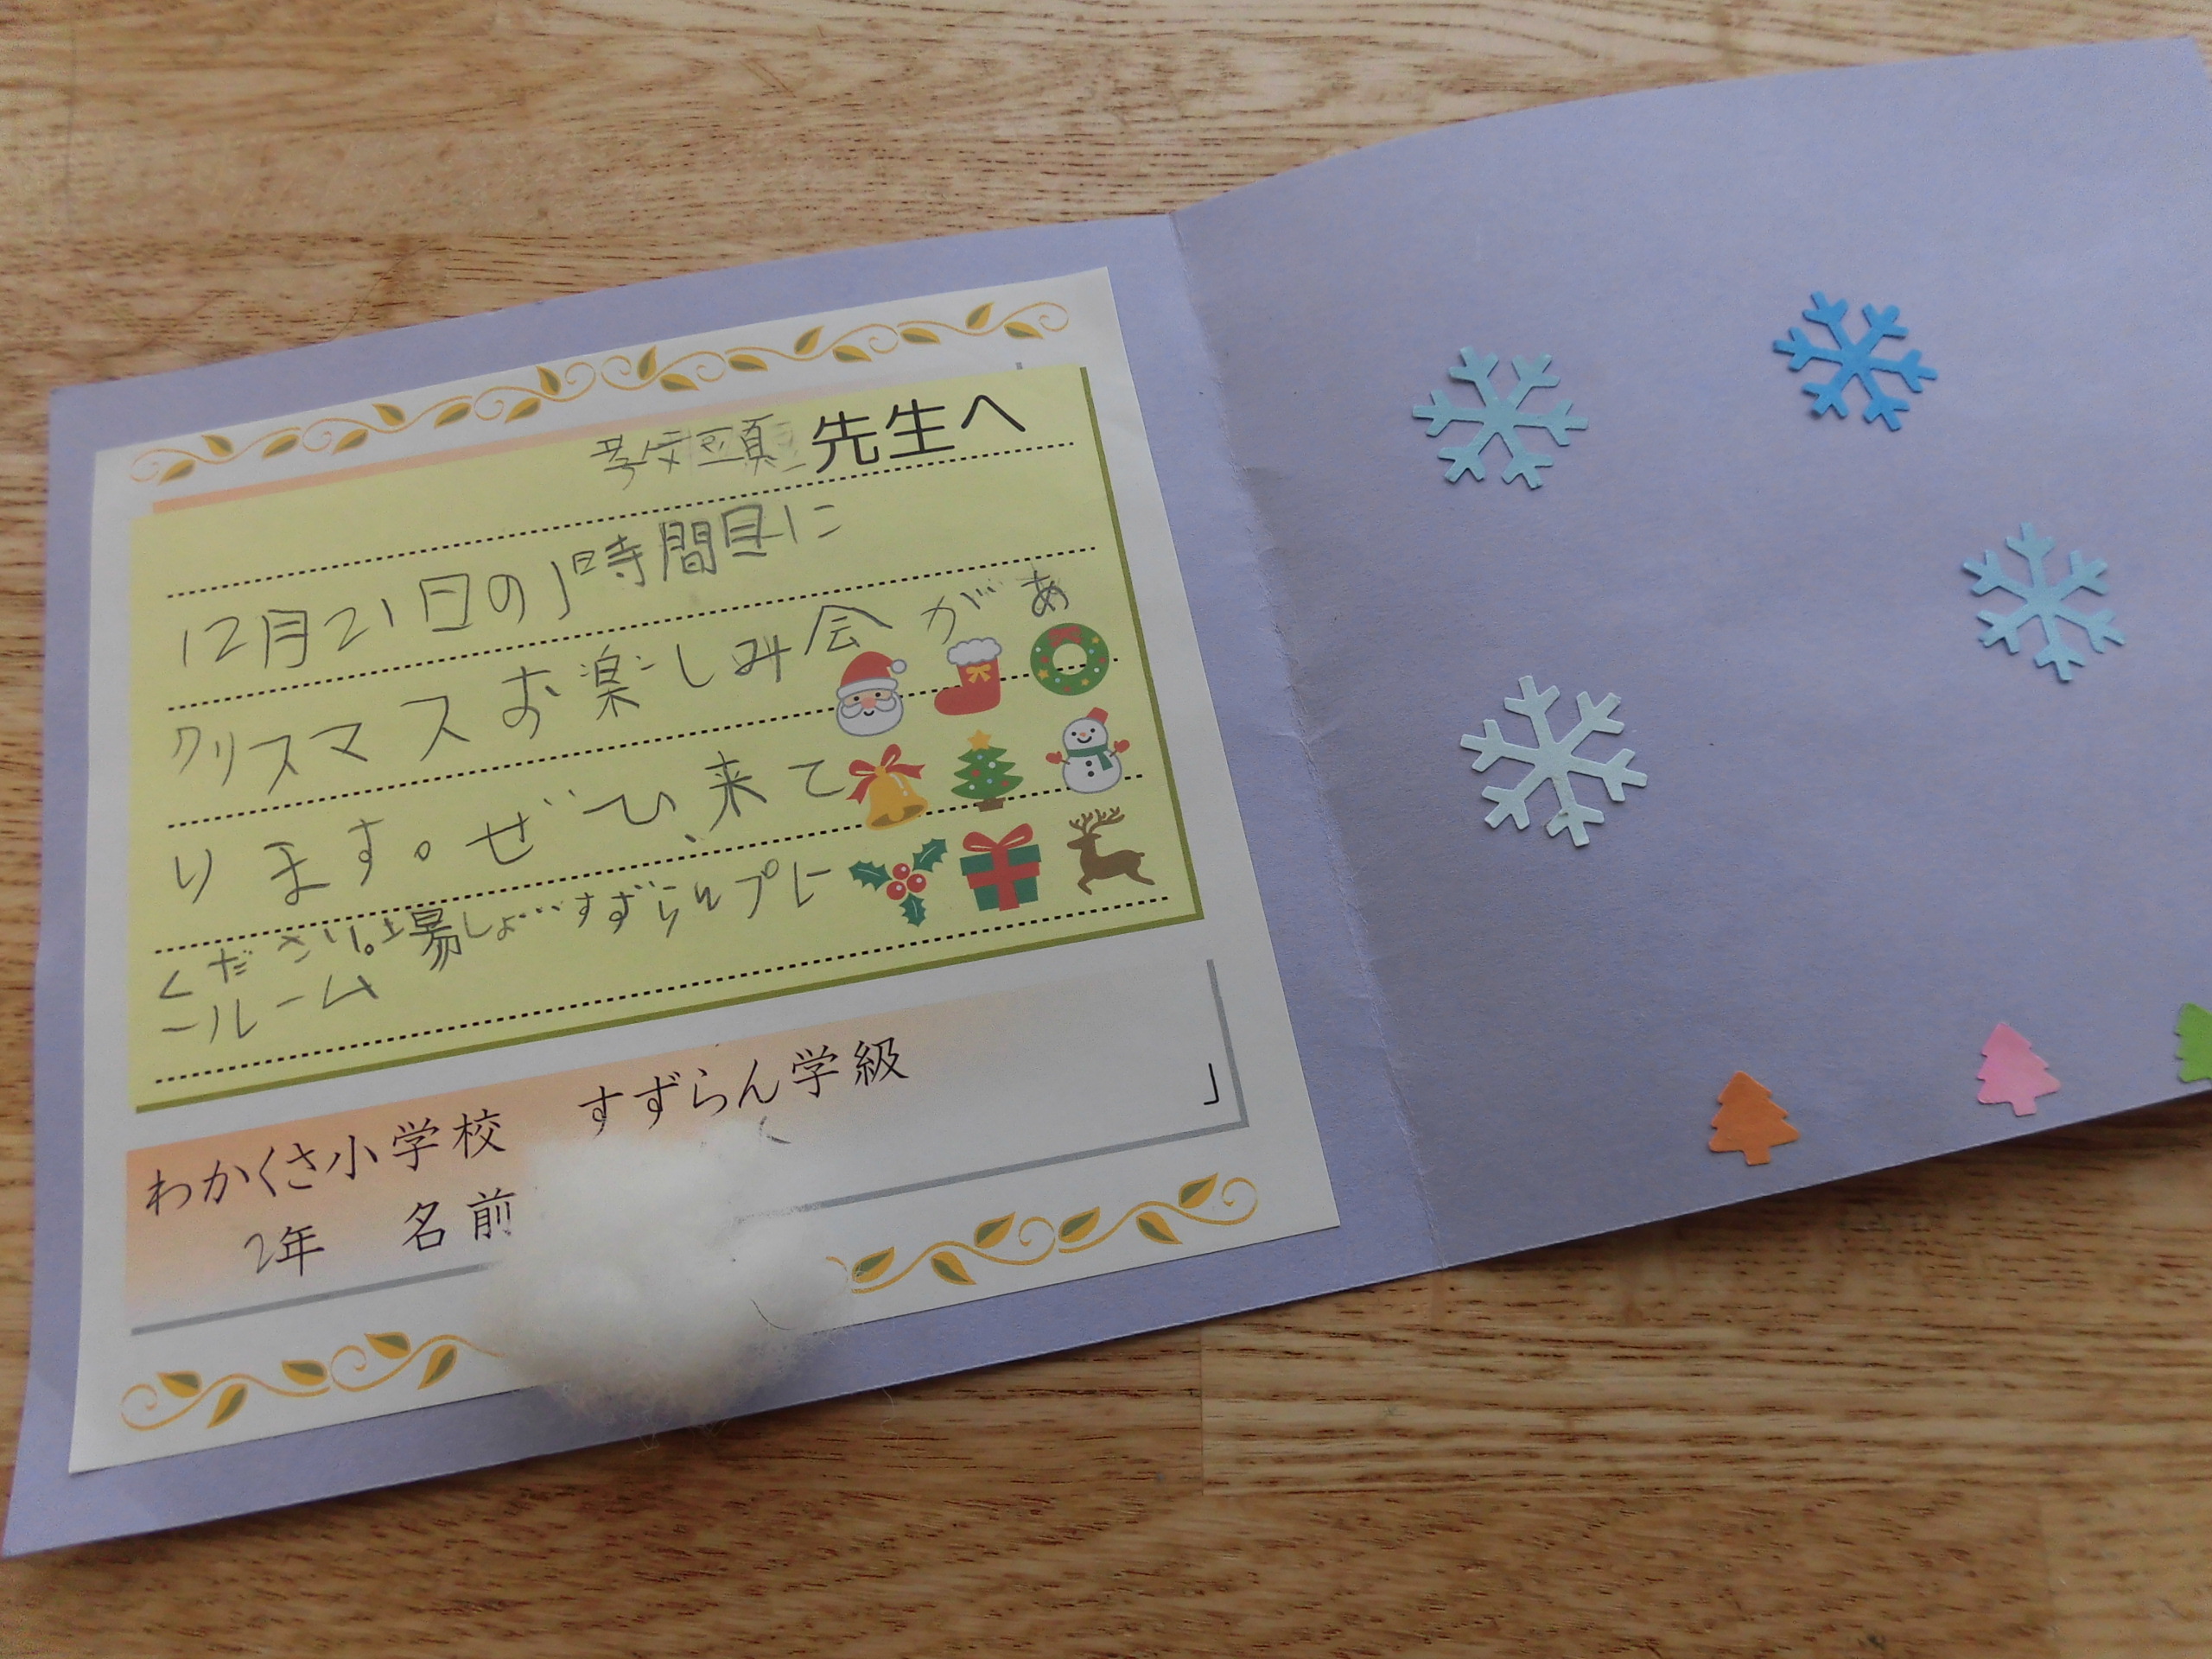 教頭先生へ
12月21日の1時間目に
クリスマスお楽しみ会があ
ります。ぜひ、来て
ください。場しょ…すずらんプレ
ールーム
わかくさ小学校 すずらん学級
2年 名前
」